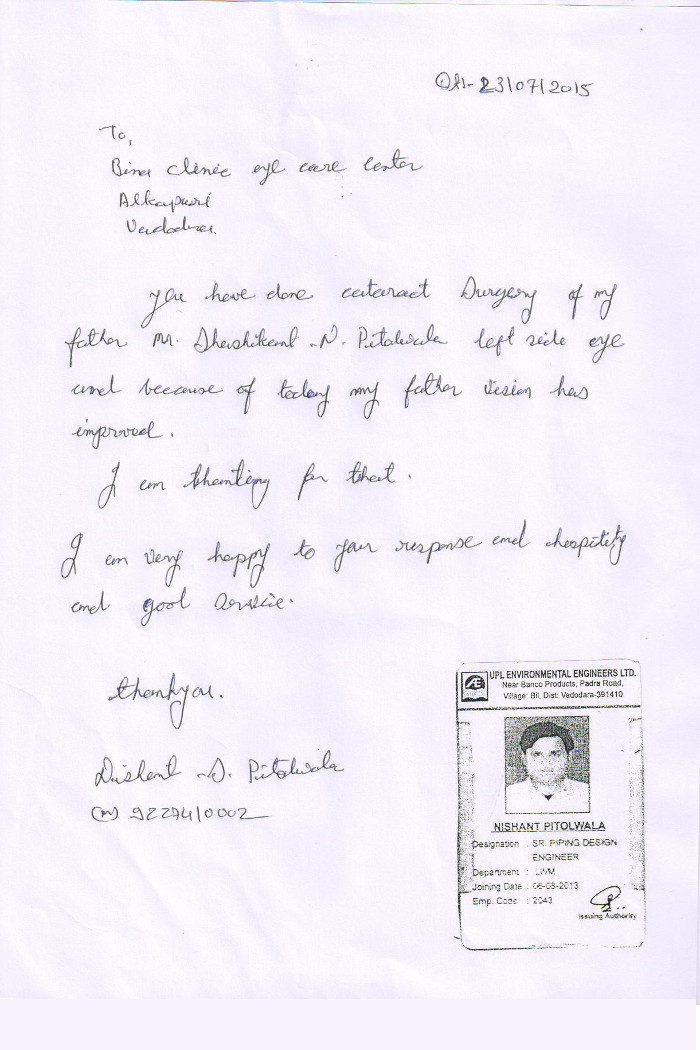 Dt:- 23/07/2015
To,
Bina clinic eye care center
Alkapuri
Vadodra.
you have done cataract Surgery of my
father Mr. Shashikant .N. Pitolwala left side eye
and because of today my father vision has
improved.
I am thanking for that.
I am very happy to your response and hospitity
and good service.
thankyou.
Nishant .S. Pitolwala
(M) 9227410002
UPL ENVIRONMENTAL ENGINEERS LTD.
Near Banco Products, Padra Road,
Village: Bil, Dist: Vadodara-391410
NISHANT PITOLWALA
Designation : SR. PIPING DESIGN
ENGINEER
Department : LWM
Joining Date : 06-08-2013
Emp. Code : 2043
Issuing Authority